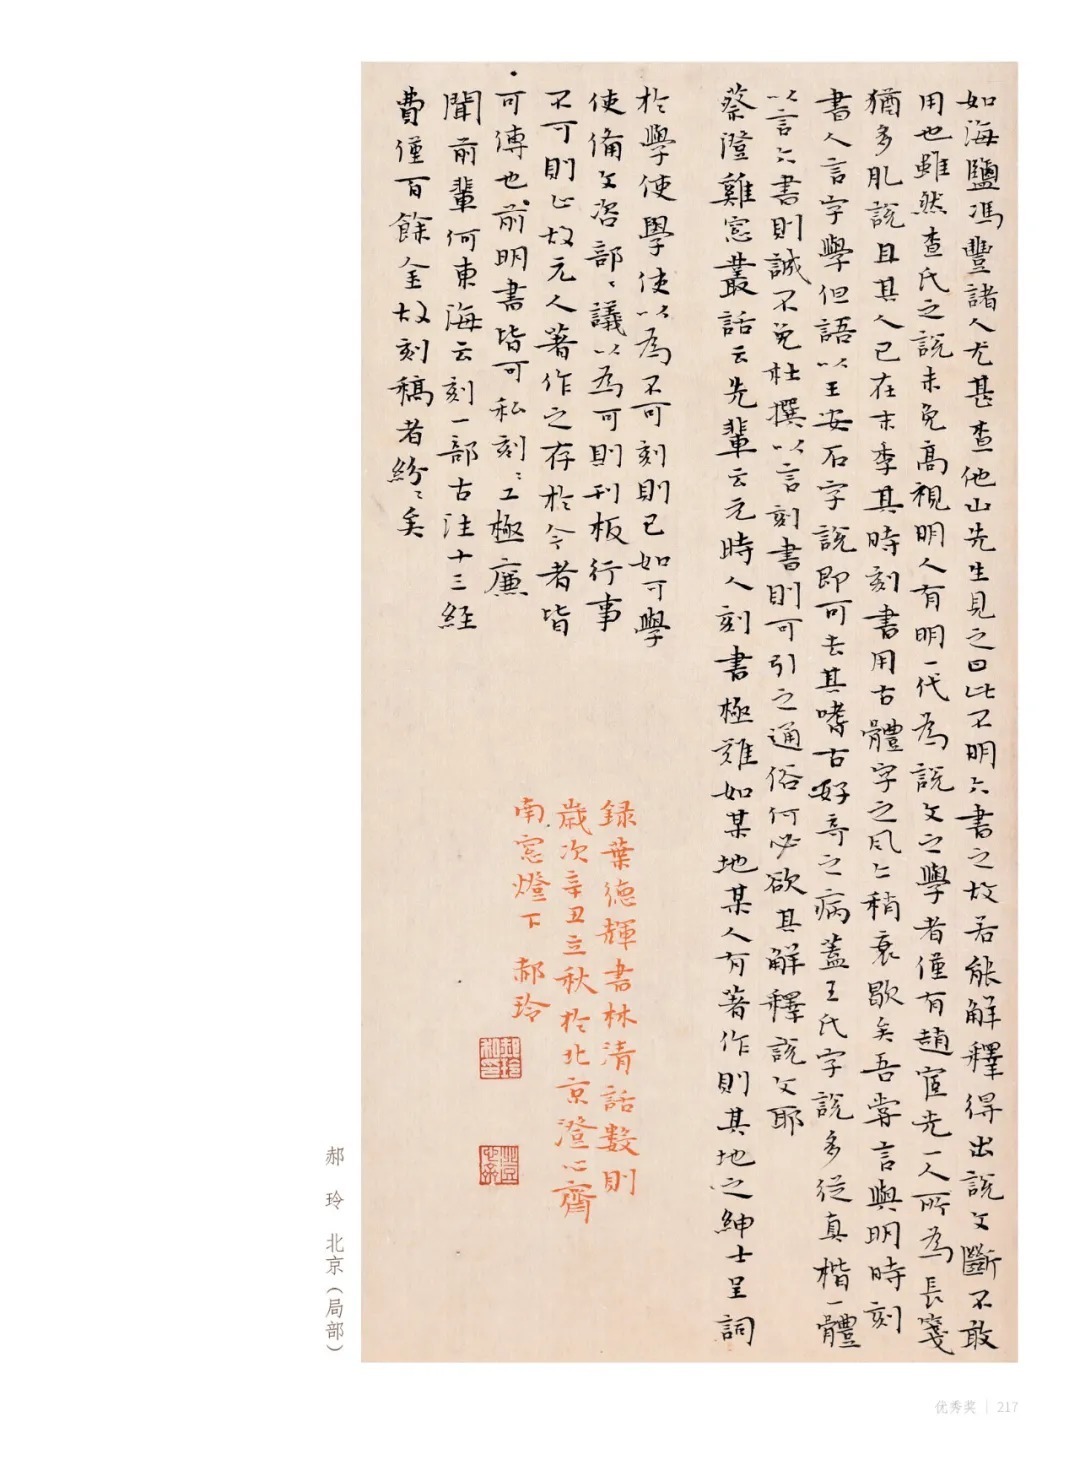 如海鹽馮豐諸人尤甚查他山先生見之曰此不明六書之故若能解釋得出說文斷不敢
用也雖然查氏之說未免高視明人有明一代為說文之學者僅有趙宧光一人所為長箋
猶多肊說且其人已在末季其時刻書用古體字之風亦稍衰歇矣吾嘗言與明時刻
書人言字學但語以王安石字說即可去其嗜古好奇之病蓋王氏字說多從真楷一體
以言六書則誠不免杜撰以言刻書則可引之通俗何必欲其解釋說文耶
蔡澄雞窓叢話云先輩云元時人刻書極難如某地某人有著作則其地之紳士呈詞
於學使學使以為不可刻則已如可學
使備文咨部〻議以為可則刊板行事
不可則止故元人著作之存於今者皆
可傳也前明書皆可私刻〻工極廉
聞前輩何東海云刻一部古注十三經
費僅百餘金故刻稿者紛〻矣
録葉德輝書林清話數則
歲次辛丑立秋於北京澄心齋
南窓燈下 郝玲
郝 玲 北京（局部）
优秀奖 | 217